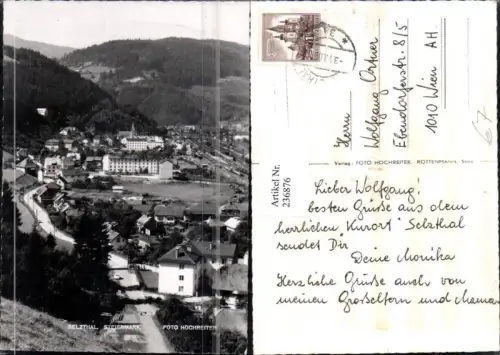 SELZTHAL STEIERMARK
FOTO HOCHREITER
Herrn
Wolfgang Ortner
Ebendorferstr. 8/5
1010 Wien AH
67
Verlag: FOTO HOCHREITER, ROTTENMANN,
Artikel Nr.
236876
Lieber Wolfgang!
besten Grüsse aus dem
herrlichen "Kurort" Selzthal
sendet Dir
Deine Monika
Herzliche Grüsse auch von
meinen Großeltern und Mama